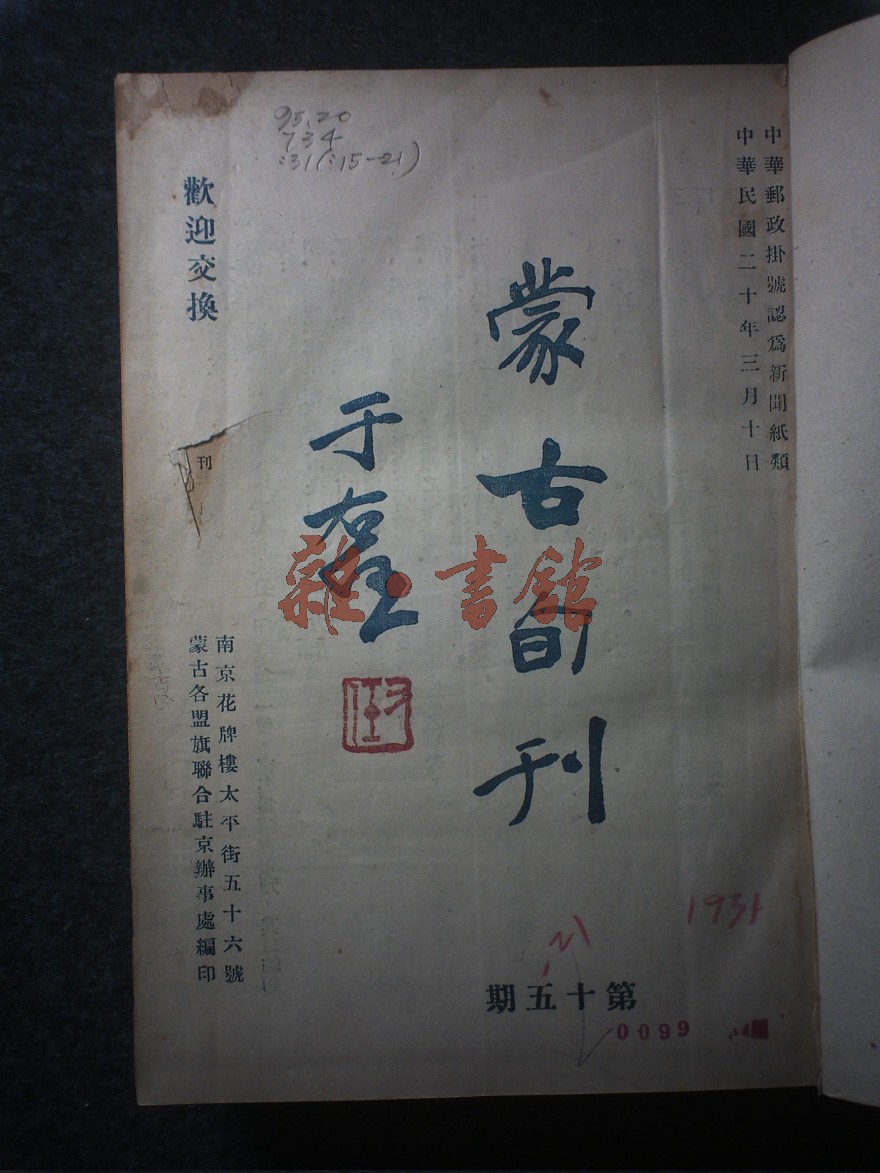 中華郵政掛號認爲新聞紙類
中華民國二十年三月十日
蒙古旬刊
于右任
歡迎交換
刊
南京花牌樓太平街五十六號
蒙古各盟旗聯合駐京辦事處編印
第十五期
95.20
734
:31(:15-21)
1931
0099
雜·書館